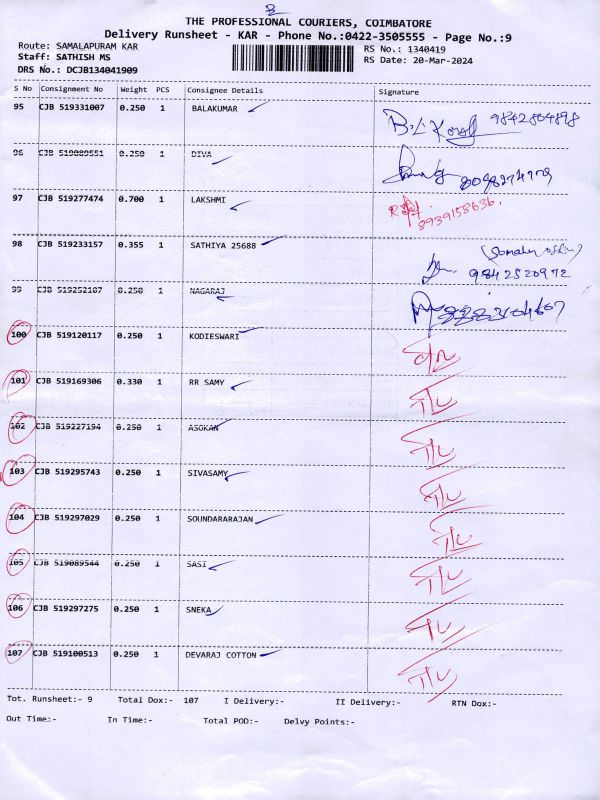 THE PROFESSIONAL COURIERS, COIMBATORE
Delivery Runsheet - KAR - Phone No.:0422-3505555 - Page No.:9
Route: SAMALAPURAM KAR RS No.: 1340419
Staff: SATHISH MS RS Date: 20-Mar-2024
DRS No.: DCJB134041909
S No Consignment No Weight PCS Consignee Details Signature
95 CJB 519331007 0.250 1 BALAKUMAR 9842804898
96 CJB 519089551 0.250 1 DIVA
8098274779
97 CJB 519277474 0.700 1 LAKSHMI
8939158636.
98 CJB 519233157 0.355 1 SATHIYA 25688
9842520972
99 CJB 519252187 0.250 1 NAGARAJ
100 CJB 519120117 0.250 1 KODIESWARI
101 CJB 519169306 0.330 1 RR SAMY
102 CJB 519227194 0.250 1 ASOKAN
103 CJB 519295743 0.250 1 SIVASAMY
104 CJB 519297029 0.250 1 SOUNDARARAJAN
105 CJB 519089544 0.250 1 SASI
106 CJB 519297275 0.250 1 SNEKA
107 CJB 519100513 0.250 1 DEVARAJ COTTON
Tot. Runsheet:- 9 Total Dox:- 107 I Delivery:- II Delivery:- RTN Dox:-
Out Time:- In Time:- Total POD:- Delvy Points:-